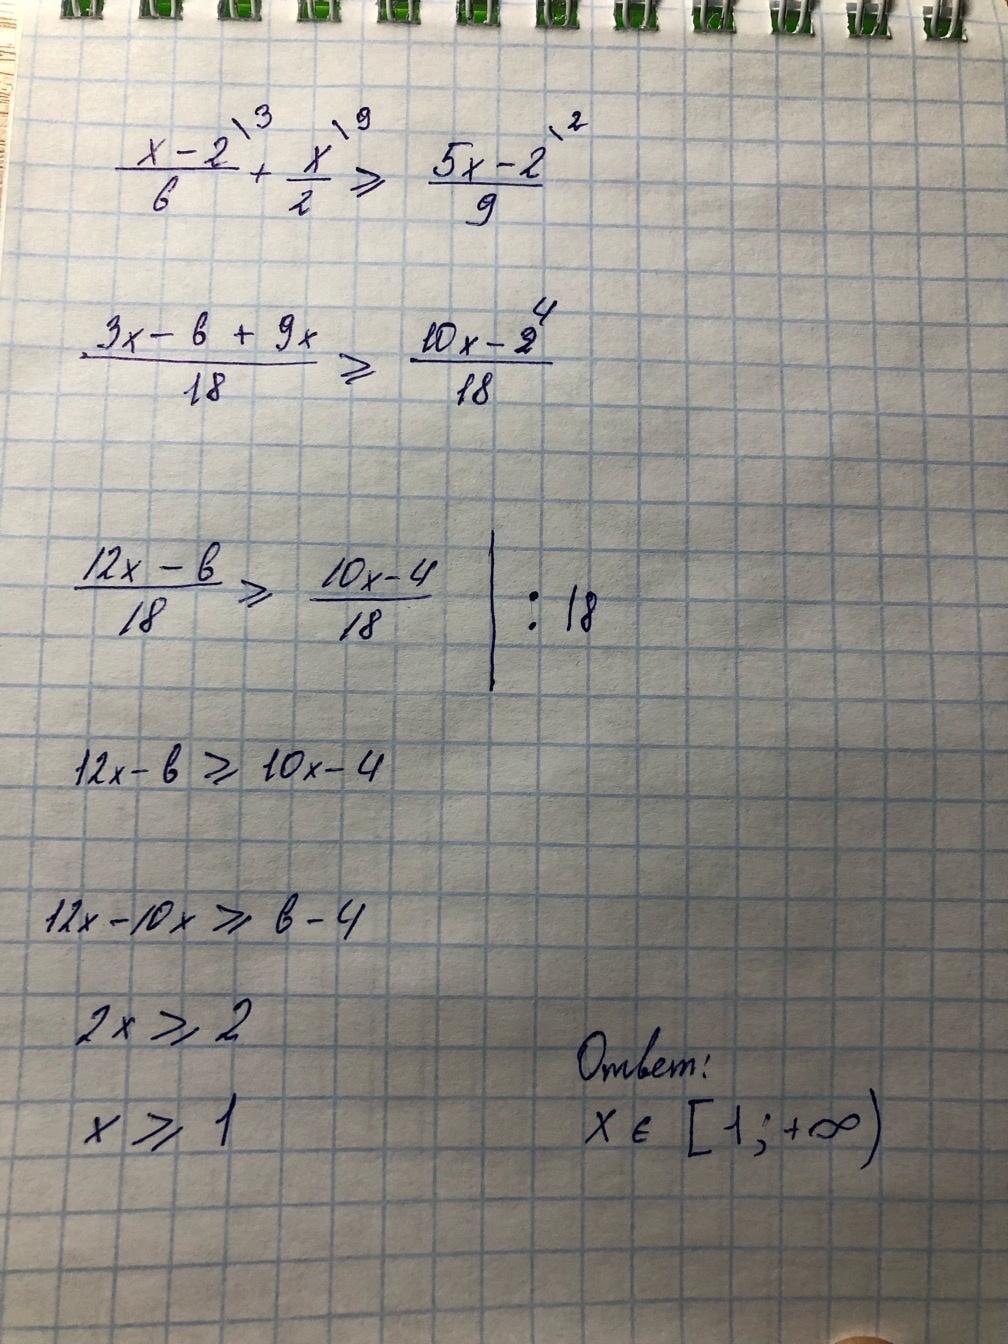 x-2/6 \3 + x/2 \9 ⩾ 5x-2/9 \2
3x-6+9x/18 ⩾ 10x-4/18
12x-6/18 ⩾ 10x-4/18 | : 18
12x-6 ⩾ 10x-4
12x-10x ⩾ 6-4
2x ⩾ 2
x ⩾ 1
Ответ:
x ∈ [1; +∞)